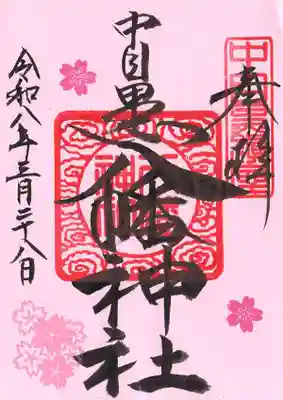 奉拝
中目黒
八幡神社
令和八年三月二十八日